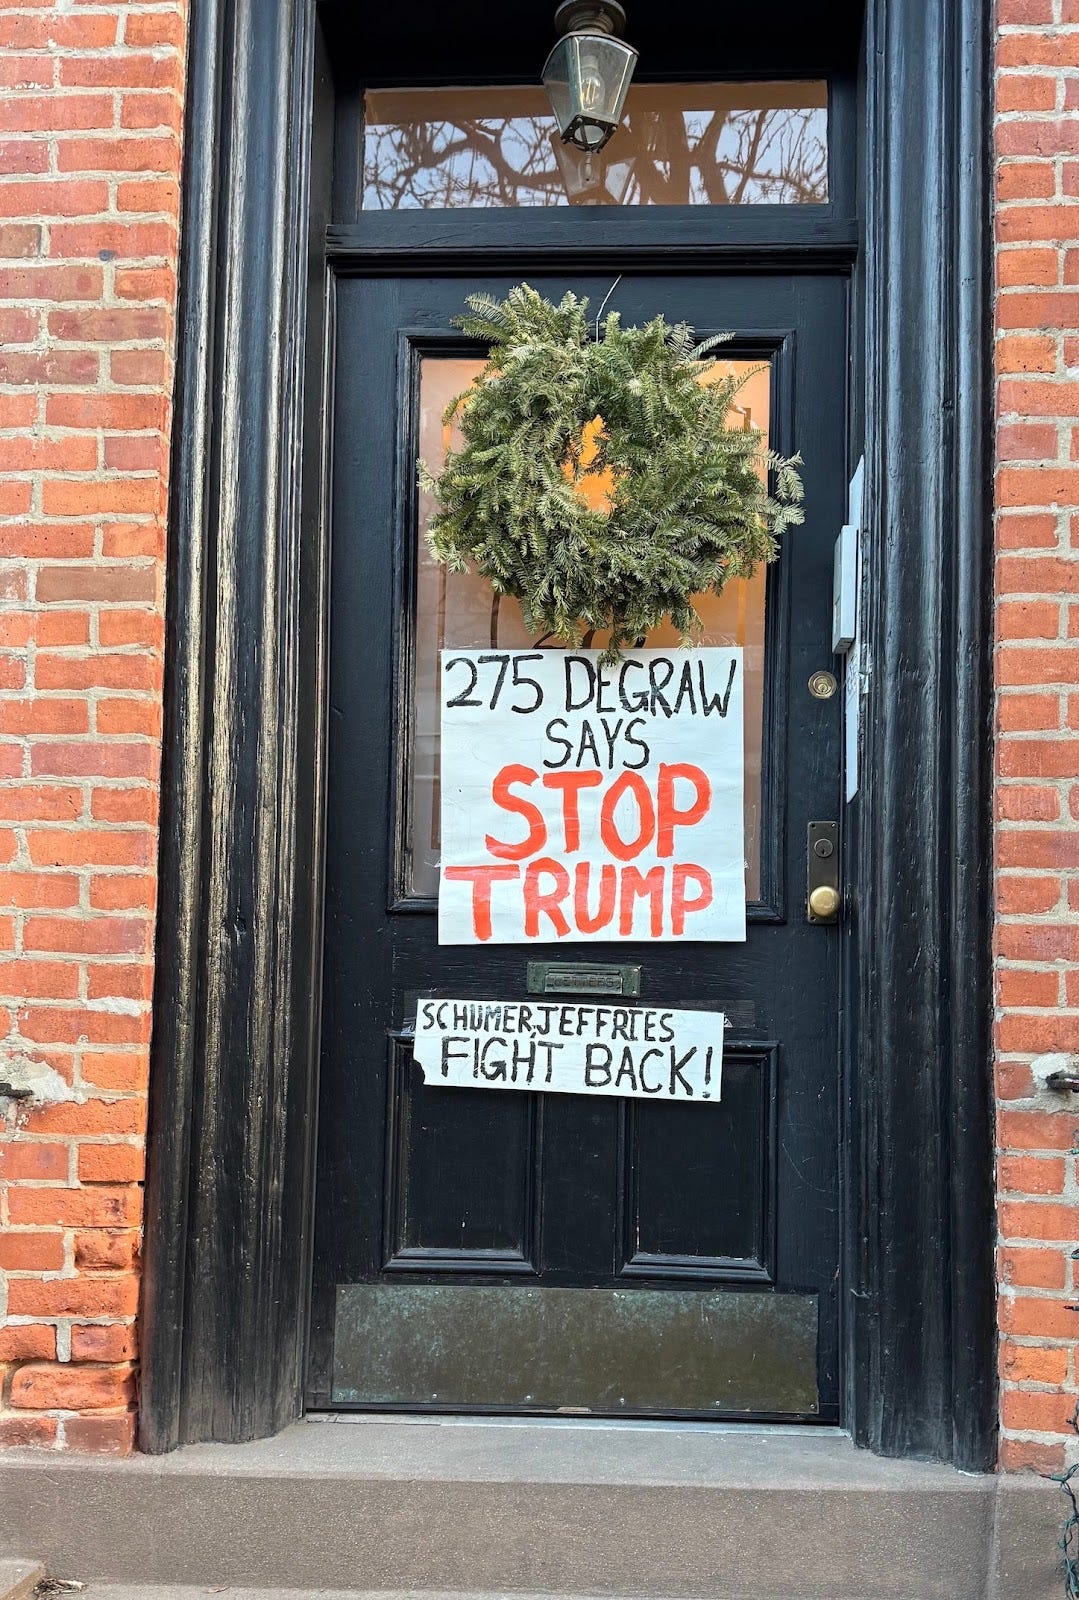 275 DEGRAW
SAYS
STOP
TRUMP
LETTERS
SCHUMER, JEFFRIES
FIGHT BACK!